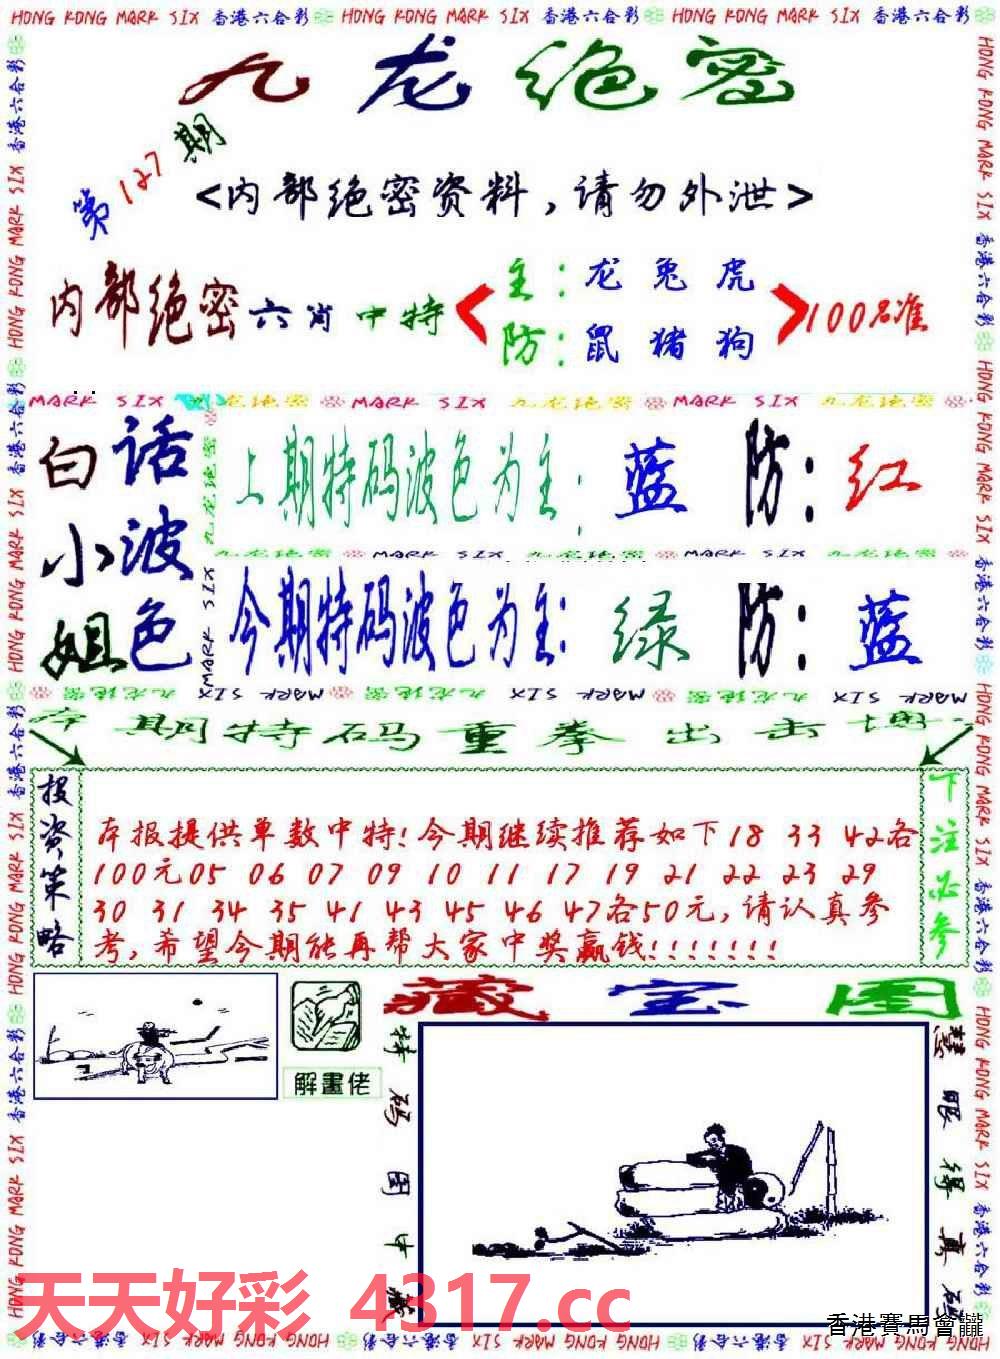 HONG KONG MARK SIX 香港六合彩 HONG KONG MARK SIX 香港六合彩 HONG KONG MARK SIX 香港六合彩
九龙绝密
第127期
<内部绝密资料,请勿外泄>
内部绝密六肖中特
主:龙 兔 虎
防:鼠 猪 狗
100%准
MARK SIX 九龙绝密 MARK SIX 九龙绝密 MARK SIX 九龙绝密
白小姐
话波色
上期特码波色为主:蓝 防:红
九龙绝密 MARK SIX 九龙绝密 MARK SIX 九龙绝密
今期特码波色为主:绿 防:蓝
九龙绝密 MARK SIX 九龙绝密 MARK SIX 九龙绝密 MARK SIX
本期特码重拳出击
投资策略
本报提供单数中特!今期继续推荐如下18 33 42各
100元05 06 07 09 10 11 17 19 21 22 23 29
30 31 34 35 41 43 45 46 47各50元,请认真参
考,希望今期能再帮大家中奖赢钱!!!!!!!
下注必参
藏宝图
解畫佬
特码图中藏
慧眼得真码
天天好彩 4317.cc
香港賽馬會
HONG KONG MARK SIX 香港六合彩 HONG KONG MARK SIX 香港六合彩 HONG KONG MARK SIX 香港六合彩